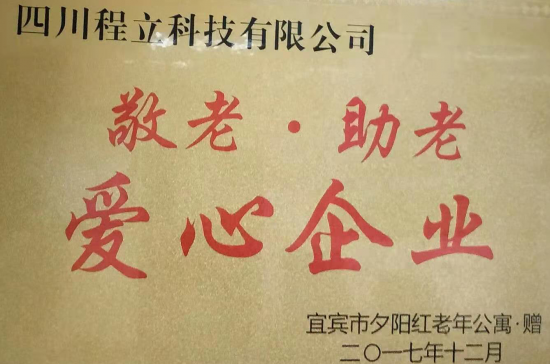 四川程立科技有限公司
敬老·助老
爱心企业
宜宾市夕阳红老年公寓·赠
二〇一七年十二月